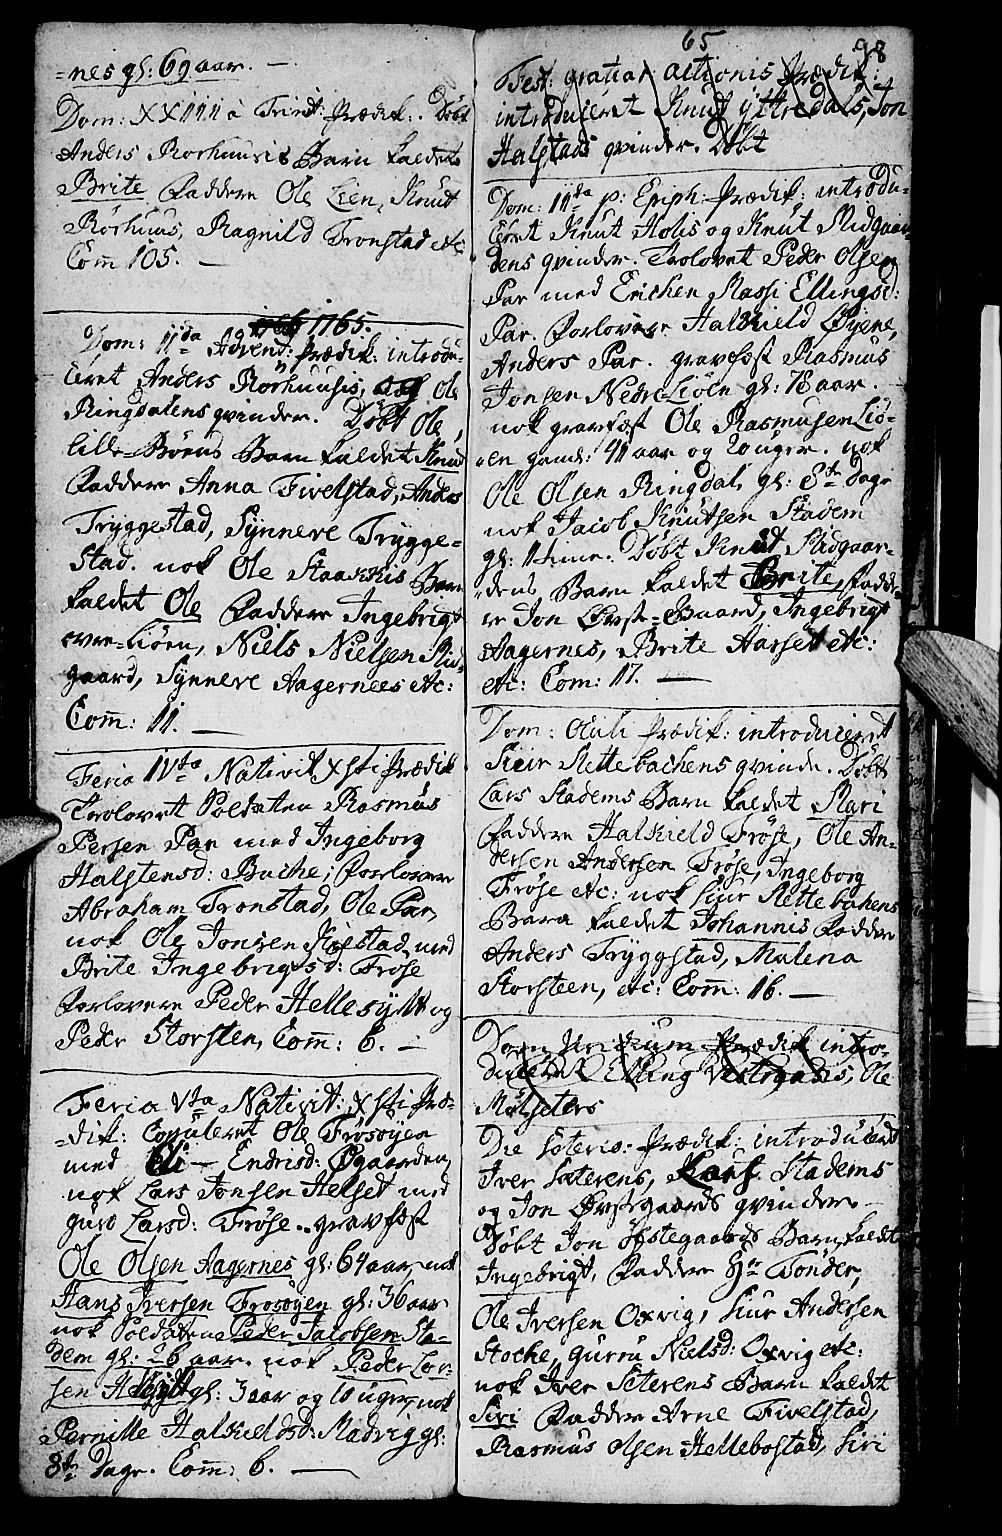 =nes gl: 69 aar. —
Dom: XXIII à Trinit: prædik: Døbt
Anders Rorhuusis Barn kaldet
Brite Faddere Ole Lien, Knut
Rorhuus, Ragnild Tronstad etc
Com̄ 105. —
1765.
Dom: IIda Advend: prædik: introdu-
ceret Anders Rorhuuses, og Ole
Ringdalens qvinder. Døbt Ole
lille-Bøens Barn kaldet Knud
Faddere Anna Fivelstad, Anders
Tryggestad, Synneve Trygge=
stad. nok Ole Staakkis Barn
kaldet Ole Faddere Ingebrigt
øvre-Liøen, Niels Nielsen Mid-
gaard, Synneve Aagernees etc:
Com̄: 11. —
Feria IVta Nativit Xsti prædik
Trolovet Soldaten Rasmus
Persen Par med Ingeborg
Halstensd: Buche; Forlovere
Abraham Tronstad, Ole Par,
nok Ole Jonsen med
Brite Ingebrigtsd: Frøse
Forlovere Peder Hellesylt og
Peder Storsten, Com̄: 6. —
Feria Vta Nativit: Xsti præ-
=dik: Copuleret Ole Frøsøyen
med Eli — Endrisd: Øgaarden,
nok Lars Jonsen Helset med
guro Larsd: Frøse. gravfæst
Ole Olsen Aagernes gl: 64 aar, nok
Hans Iversen Frøsøyen gl: 36 aar
nok Soldaten Peder Jacobsen Sta-
dem gl: 26 aar. nok Peder Lar-
sen gl: 3 aar og 10 uger, nok
Pernille Halkieldsd: Rødrigg gl:
8te Dage. Com̄: 6. —
65
98
Fest: gratiar: actionis prædik:
introduceret Knut Yttredals, Jon
Halstads qvinder. Døbt
Dom: IIda p: Epiph: prædik: introdu-
ceret Knut Holis og Knut Midgaar-
dens qvinder. Trolovet Peder Olsen
Par med Erichen Massi Ellingsd:
Par. Forlovere Halkield Øyene,
Anders Par. gravfæst Rasmus
Jonsen Nedre-Liøen gl: 78 aar.
nok gravfæst Ole Rasmusen Liø-
=en gaml: 41 aar og 20 uger. nok
Ole Olsen Ringdal, gl: 8te Dage
nok Jacob Knutsen Stadem
gl: 1 time. Døbt Knud Midgaar-
dens Barn kaldet Brite, Fadde-
re Jon Øvste-Gaard, Ingebrigt
Aagernes, Brite Aarset etc:
etc: Com: 17. —
Dom: Oculi prædik: introduceret
Siur Slettebachens qvinde. Døbt
Lars Stadems Barn kaldet Mari
Faddere Halkield Frøse, Ole An-
dersen Andersen Frøse, Ingeborg
Frøse etc: nok Siur Slettebakens
Barn kaldet Johannis Faddere
Anders Tryggstad, Malena
Storsteen, etc: Com̄: 16. —
Dom: prædik intro-
duceret Elling Vestregaards, Ole
Mølsæters
Die prædik: introduceret
Iver Sæterens, Lars Stadems
og Jon Øvstegaards qvinder.
Døbt Jon Øfstegaards Barn, kaldet
Ingebrigt, Faddere Hr Tønder,
Ole Iversen Oxvig, Siur Andersen
Stoche, Gurru Nielsd: Oxvig etc:
nok Iver Seterens Barn kaldet
Siri Faddere Arne Fivelstad,
Rasmus Olsen Hellebostad, Siri